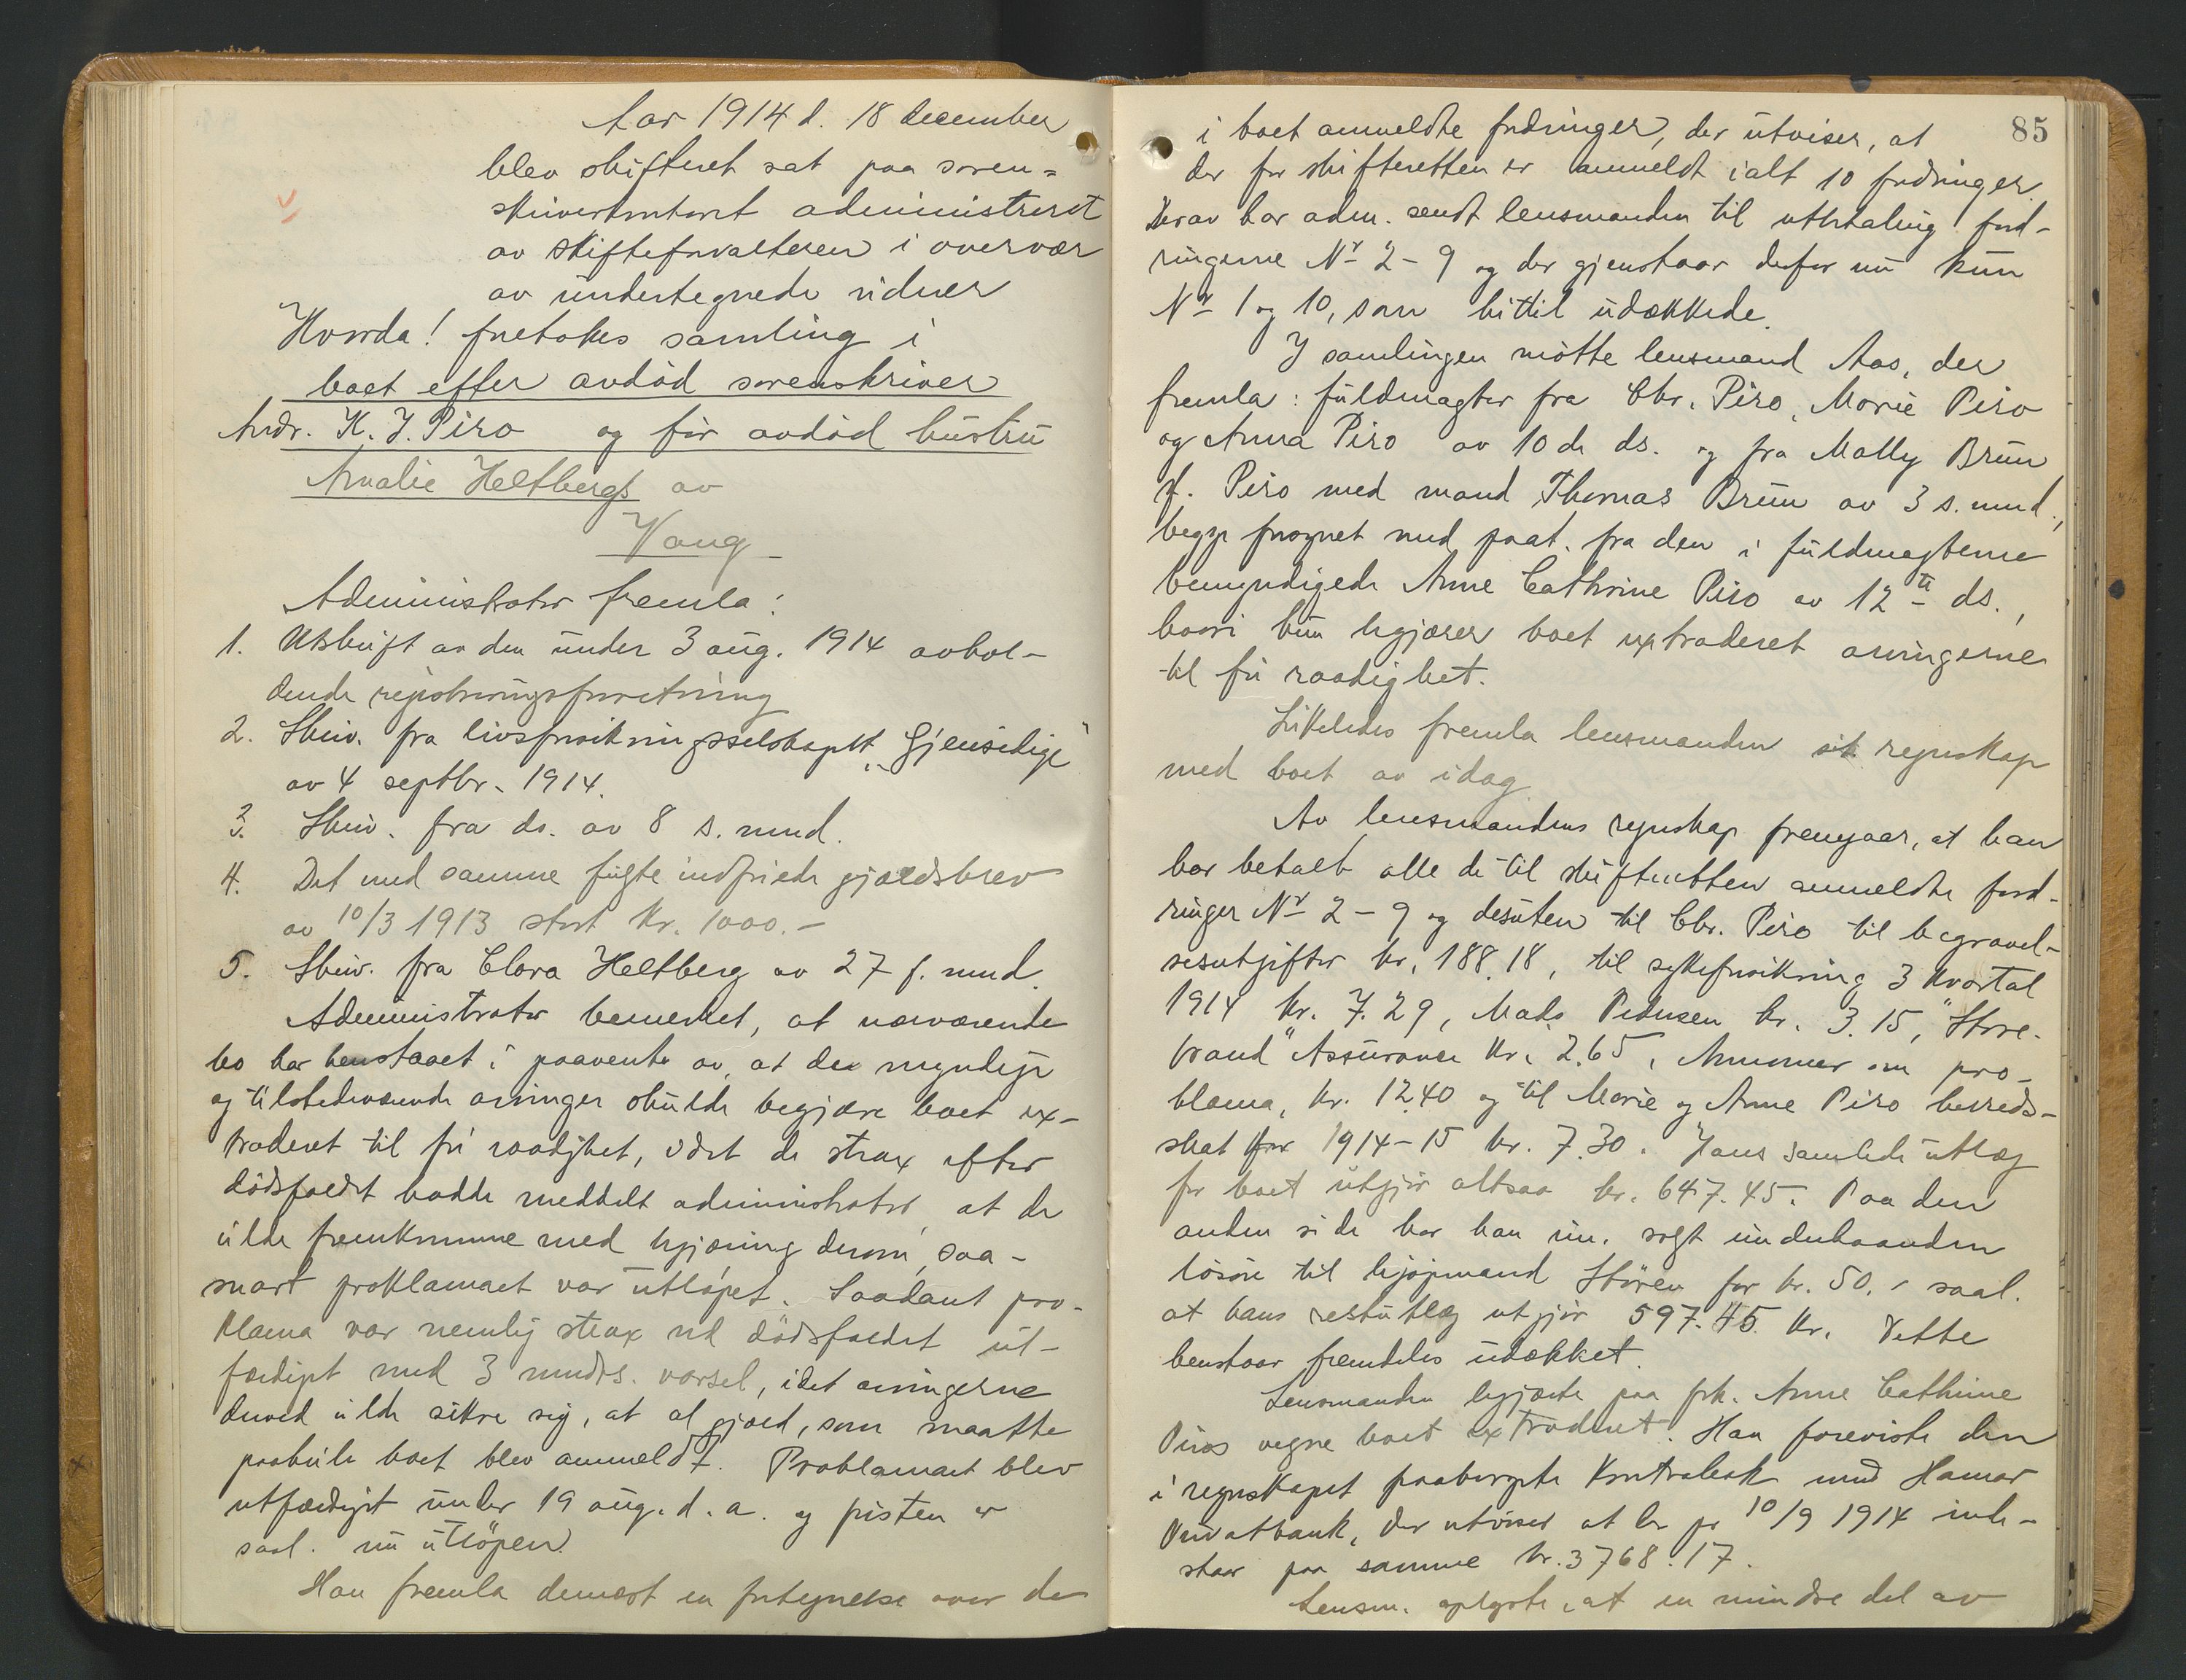 Aar 1914 d. 18 december
blev skifteret sat paa soren=
skriverkontoret administreret
av skifteforvalteren i overvær
av undertegnede vidner
Hvorda! foretokes samling i
boet efter avdød sorenskriver
Andr. K. J. Piro og før avdød hustru
Amalie Heltbergs av
Vang
Administrator fremla:
1. Utskrift av den under 3 aug. 1914 avhol-
dende registreringsforretning
2. Skriv. fra livsforsikringsselskapet „Gjensidige"
av 4 septbr. 1914.
3. Skriv. fra do. av 8 s. mnd.
4. Det med samme fulgte indfriede gjældsbrev
av 10/3 1913 stort kr. 1000.-
5. Skriv. fra Clara Heltberg av 27 f. mnd.
Administrator bemerket, at nærværende
bo har henstaaet i paavente av, at de myndige
og tilstedeværende arvinger skulde begjære boet ex-
traderet til fri raadighet, idet de strax efter
dødsfaldet hadde meddelt administrator, at de
vilde fremkomme med begjæring derom, saa-
snart proklamaet var utløpet. Saadant pro-
klama var nemlig strax ved dødsfaldet ut-
færdiget med 3 mndrs. varsel, idet arvingerne
derved vilde sikre sig, at al gjæld, som maatte
paahvile boet blev anmeldt. Proklamaet blev
utfærdiget under 19 aug. d. a. og fristen er
saal. nu utløpen.
Han fremla dernæst en fortegnelse over de
85
i boet anmeldte fordringer, der utviser, at
der for skifteretten er anmeldt ialt 10 fordringer.
Derav har adm. sendt lensmanden til utbetaling ford-
ringerne Nr 2-9 og der gjenstaar derfor nu kun
Nr 1 og 10, som hittil udækkede.
I samlingen møtte lensmand Aas, der
fremla: fuldmagter fra Chr. Piro, Marie Piro
og Anna Piro av 10 de ds. og fra Molly Brun
f. Piro med mand Thomas Brun av 3 s. mnd.,
begge forsynet med paat. fra den i fuldmagterne
bemyndigede Anne Cathrine Piro av 12te ds.,
hvori hun begjærer boet extraderet arvingerne
til fri raadighet.
Likeledes fremla lensmanden sit regnskap
med boet av idag
Av lensmandens regnskap fremgaar, at han
har betalt alle de til skifteretten anmeldte ford-
ringer Nr 2-9 og desuten til Chr. Piro til begravel-
sesutgifter kr. 188.18, til sykeforsikring 3 kvartal
1914 kr. 7.29, Mads Pedersen kr. 3.15, "Store-
brand" Assurance kr. 2.65, Annoncer om pro-
klama, kr. 12.40 og til Marie og Anne Piro herreds-
skat for 1914-15 kr. 7.30. Hans samlede utlæg
for boet utgjør altsaa kr. 647.45. Paa den
anden side har han nu. solgt underhaanden
løsøre til kjøpmand Støren for kr. 50.- saal.
at hans restutlæg utgjør 597.45 kr. Dette
henstaar fremdeles udækket.
Lensmanden begjærte paa frk. Anne Cathrine
Piros vegne boet extraderet. Han foreviste den
i regnskapet paaberopte kontrabok med Hamar
Privatbank, der utviser at der pr 10/9 1914 inde-
staar paa samme kr. 3768.17.
Lensm. oplyste, at en mindre del av